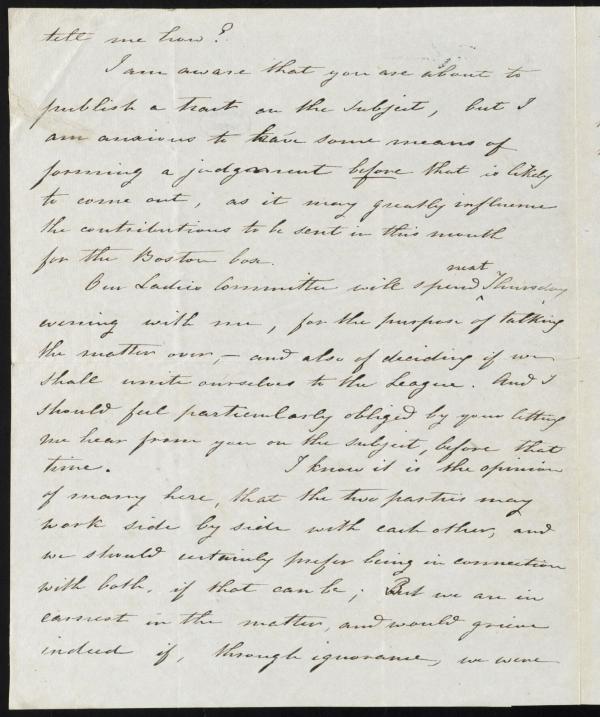 tell me how?
I am aware that you are about to
publish a tract on the subject, but I
am anxious to have some means of
forming a judgment before that is likely
to come out, as it may greatly influence
the contributions to be sent in this month
for the Boston box.
next
Our Ladies Committee will spend ^ Thursday
evening with me, for the purpose of talking
the matter over, – and also of deciding if we
shall unite ourselves to the League. And I
should feel particularly obliged by your letting
me hear from you on the subject, before that
time. I know it is the opinion
of many here, that the two parties may
work side by side with each other, and
we should certainly prefer being in connection
with both, if that can be; But we are in
earnest in the matter, and would grieve
indeed if, through ignorance, we were